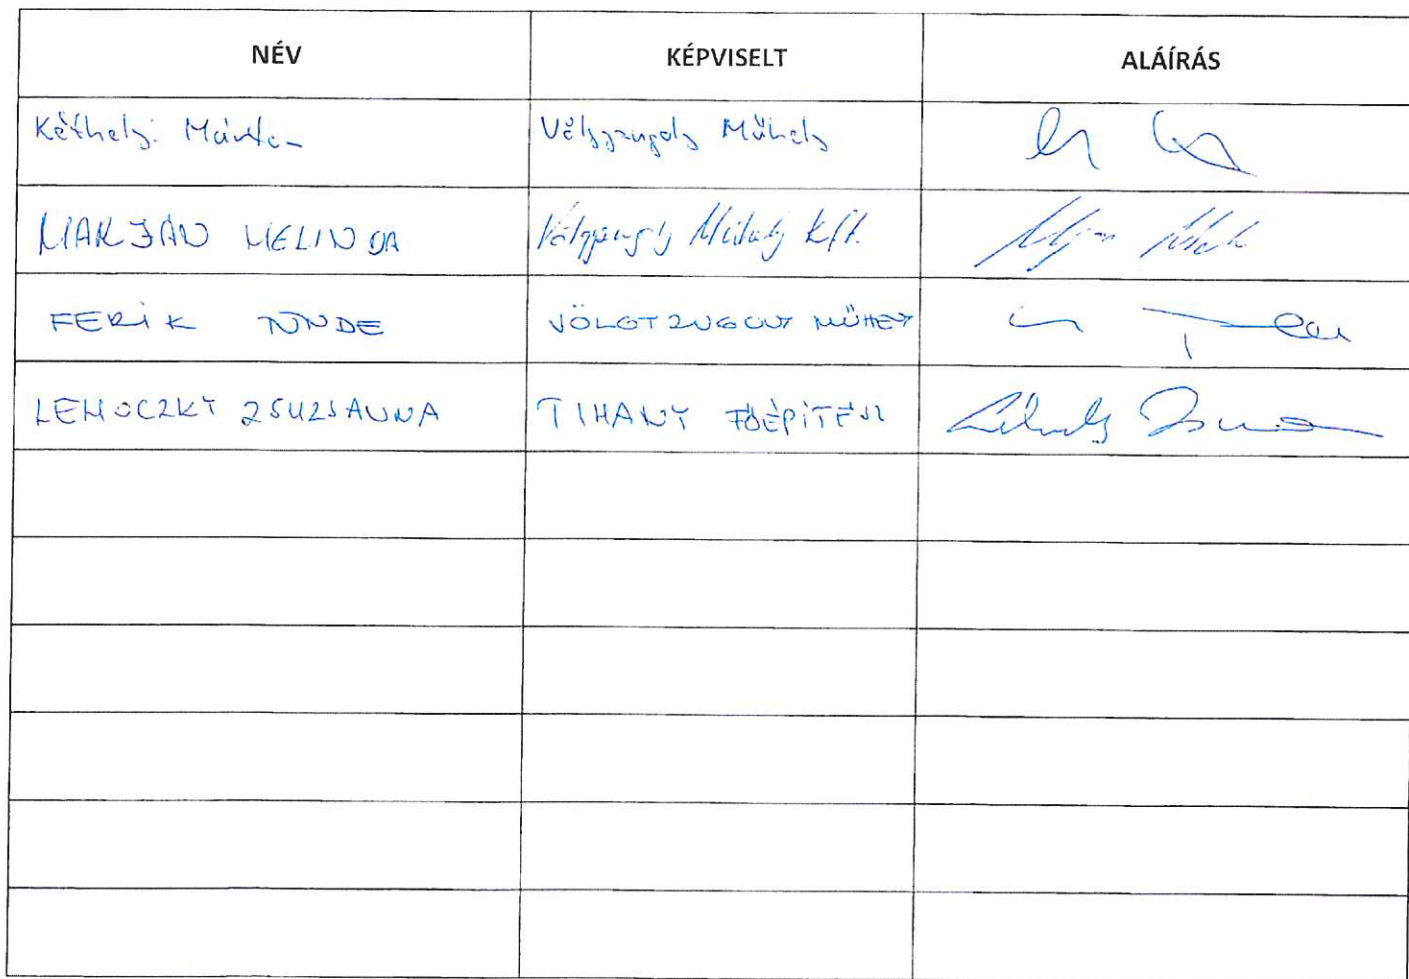 NÉV KÉPVISELT ALÁÍRÁS
Kéthelyi Márton Völgyzugoly Műhely
MARJÁN MELINDA Völgyzugoly Műhely Kft.
FERIK TÜNDE VÖLGYZUGOLY MŰHELY
LEHOCZKY ZSUZSANNA TIHANY FŐÉPÍTÉSZ